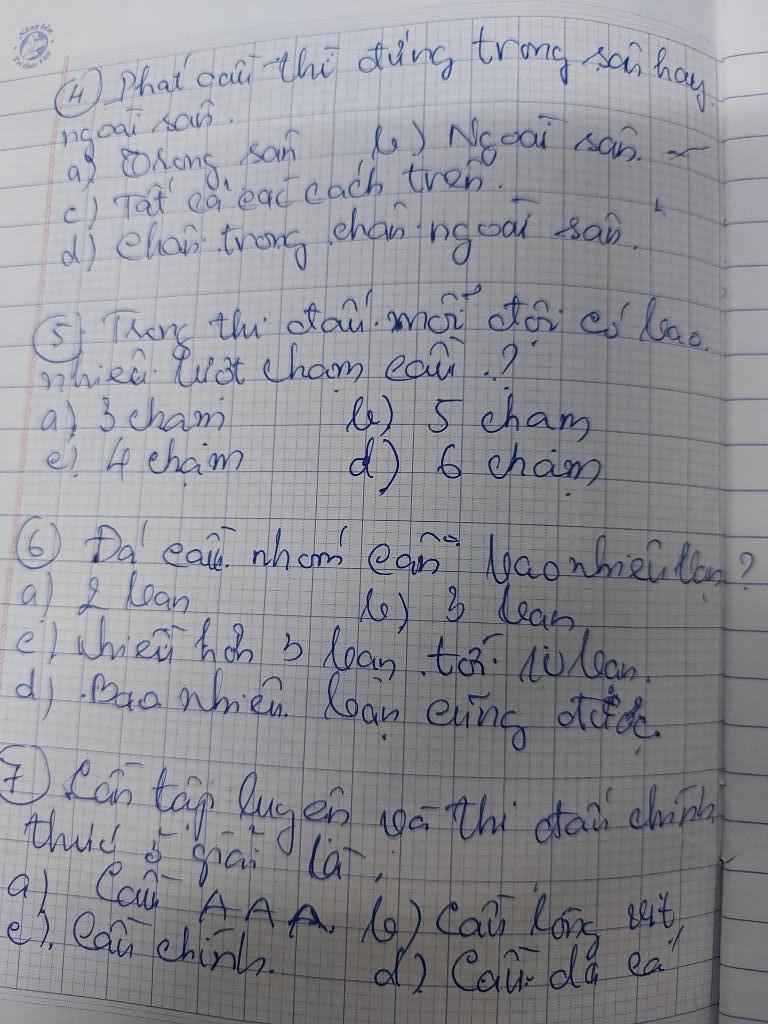 ④ Phát cầu thì đứng trong sân hay
ngoài sân.
a) Trong sân b) Ngoài sân.
c) Tất cả các cách trên.
d) Chân trong chân ngoài sân.
⑤ Trong thi đấu mỗi đội có bao
nhiêu lượt chạm cầu?
a) 3 chạm b) 5 chạm
c) 4 chạm d) 6 chạm
⑥ Đá cầu nhóm cần bao nhiêu bạn?
a) 2 bạn b) 3 bạn
c) Nhiều hơn 3 bạn tới 10 bạn.
d) Bao nhiêu bạn cũng được.
⑦ Cầu tập luyện và thi đấu chính
thức ở giải là:
a) Cầu AAA b) Cầu lông vịt
c) Cầu chinh. d) Cầu da cá